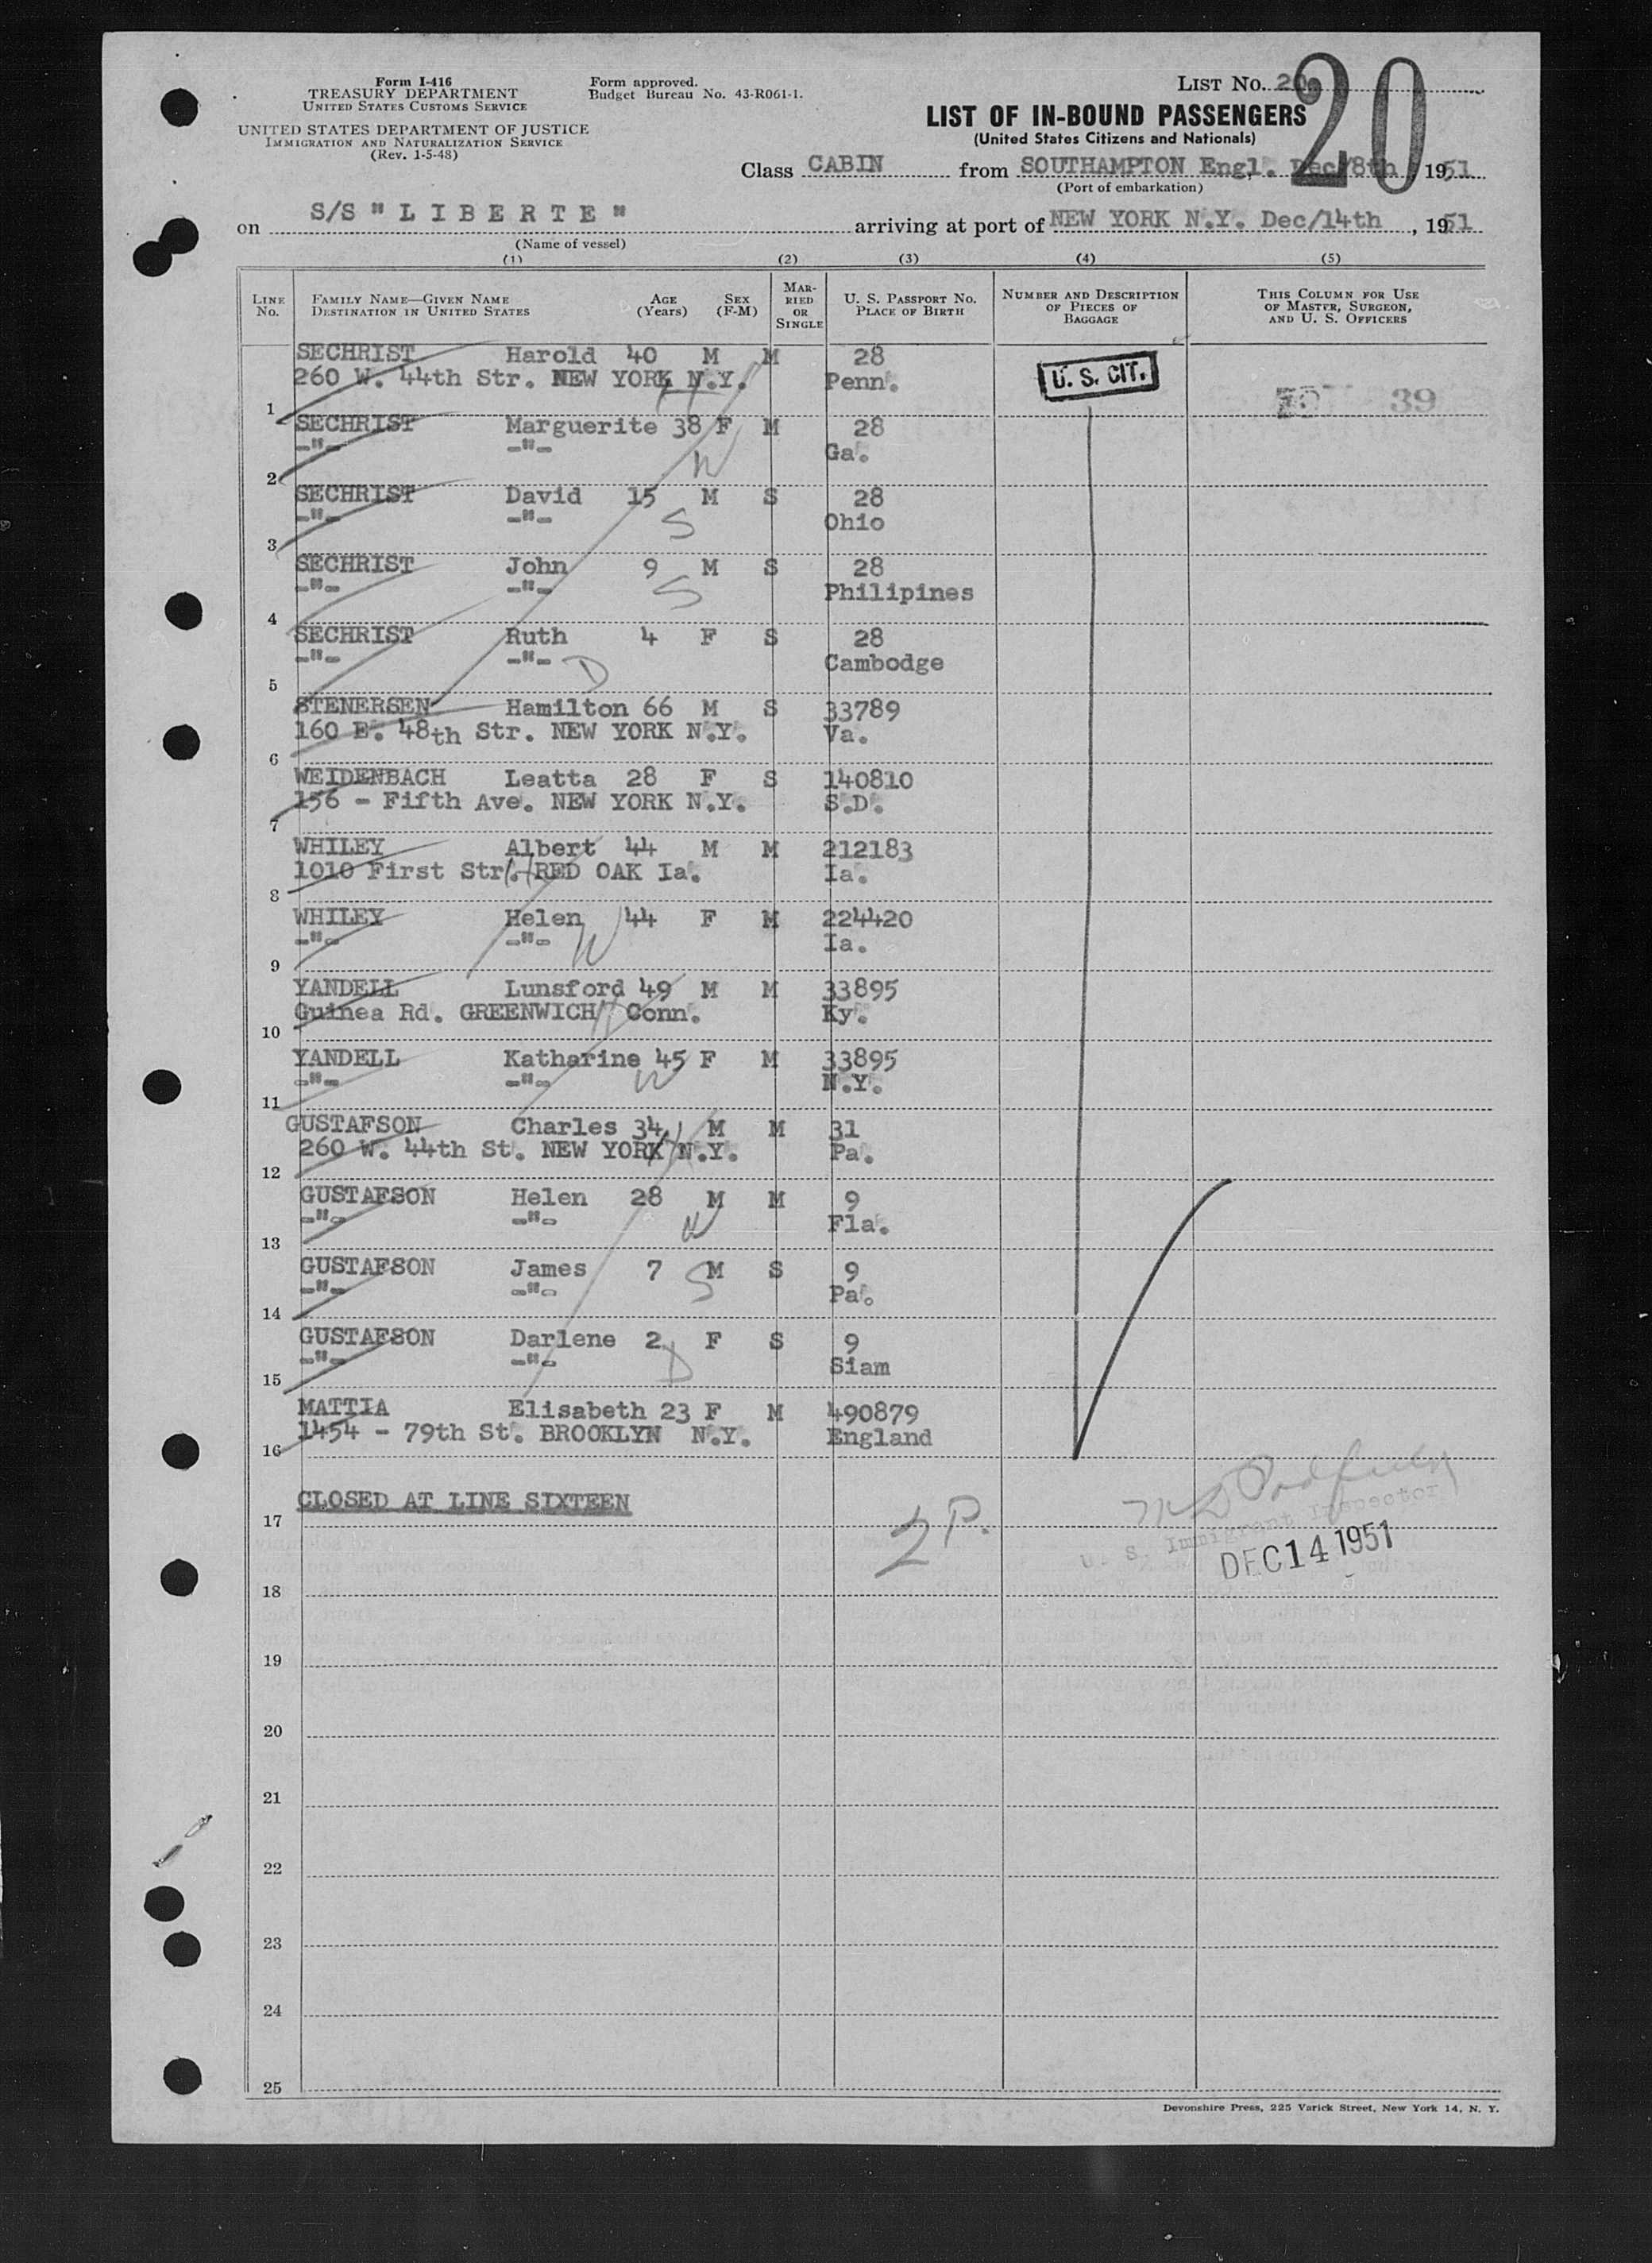 Form I-416
TREASURY DEPARTMENT
UNITED STATES CUSTOMS SERVICE
UNITED STATES DEPARTMENT OF JUSTICE
IMMIGRATION AND NATURALIZATION SERVICE
(Rev. 1-5-48)
Form approved.
Budget Bureau No. 43-R061-1.
LIST No. 20
20
LIST OF IN-BOUND PASSENGERS
(United States Citizens and Nationals)
Class CABIN from SOUTHAMPTON Engl. Dec/8th, 1951
(Port of embarkation)
on S/S "LIBERTE" arriving at port of NEW YORK N.Y. Dec/14th, 1951
(Name of vessel)
(1) (2) (3) (4) (5)
LINE No. FAMILY NAME—GIVEN NAME DESTINATION IN UNITED STATES AGE (Years) SEX (F-M) MARRIED OR SINGLE U. S. PASSPORT NO. PLACE OF BIRTH NUMBER AND DESCRIPTION OF PIECES OF BAGGAGE THIS COLUMN FOR USE OF MASTER, SURGEON, AND U. S. OFFICERS
SECHRIST Harold 40 M M 28
260 W. 44th Str. NEW YORK N.Y. Penn. U. S. CIT.
H
1 39
SECHRIST Marguerite 38 F M 28
-"- -"- Ga.
W
2
SECHRIST David 15 M S 28
-"- -"- Ohio
S
3
SECHRIST John 9 M S 28
-"- -"- Philipines
S
4
SECHRIST Ruth 4 F S 28
-"- -"- Cambodge
D
5
STENERSEN Hamilton 66 M S 33789
160 E. 48th Str. NEW YORK N.Y. Va.
6
WEIDENBACH Leatta 28 F S 140810
156 - Fifth Ave. NEW YORK N.Y. S.D.
7
WHILEY Albert 44 M M 212183
1010 First Str. H RED OAK Ia. Ia.
8
WHILEY Helen 44 F M 224420
-"- -"- W Ia.
9
YANDELL Lunsford 49 M M 33895
Guinea Rd. GREENWICH H Conn. Ky.
10
YANDELL Katharine 45 F M 33895
-"- -"- W N.Y.
11
GUSTAFSON Charles 34 M M 31
260 W. 44th St. NEW YORK H N.Y. Pa.
12
GUSTAFSON Helen 28 M M 9
-"- -"- W Fla.
13
GUSTAFSON James 7 M S 9
-"- -"- S Pa.
14
GUSTAFSON Darlene 2 F S 9
-"- -"- D Siam
15
MATTIA Elisabeth 23 F M 490879
1454 - 79th St. BROOKLYN N.Y. England
16
CLOSED AT LINE SIXTEEN
17
2 P.
U. S. Immigrant Inspector
DEC 14 1951
18
19
20
21
22
23
24
25
Devonshire Press, 225 Varick Street, New York 14, N. Y.